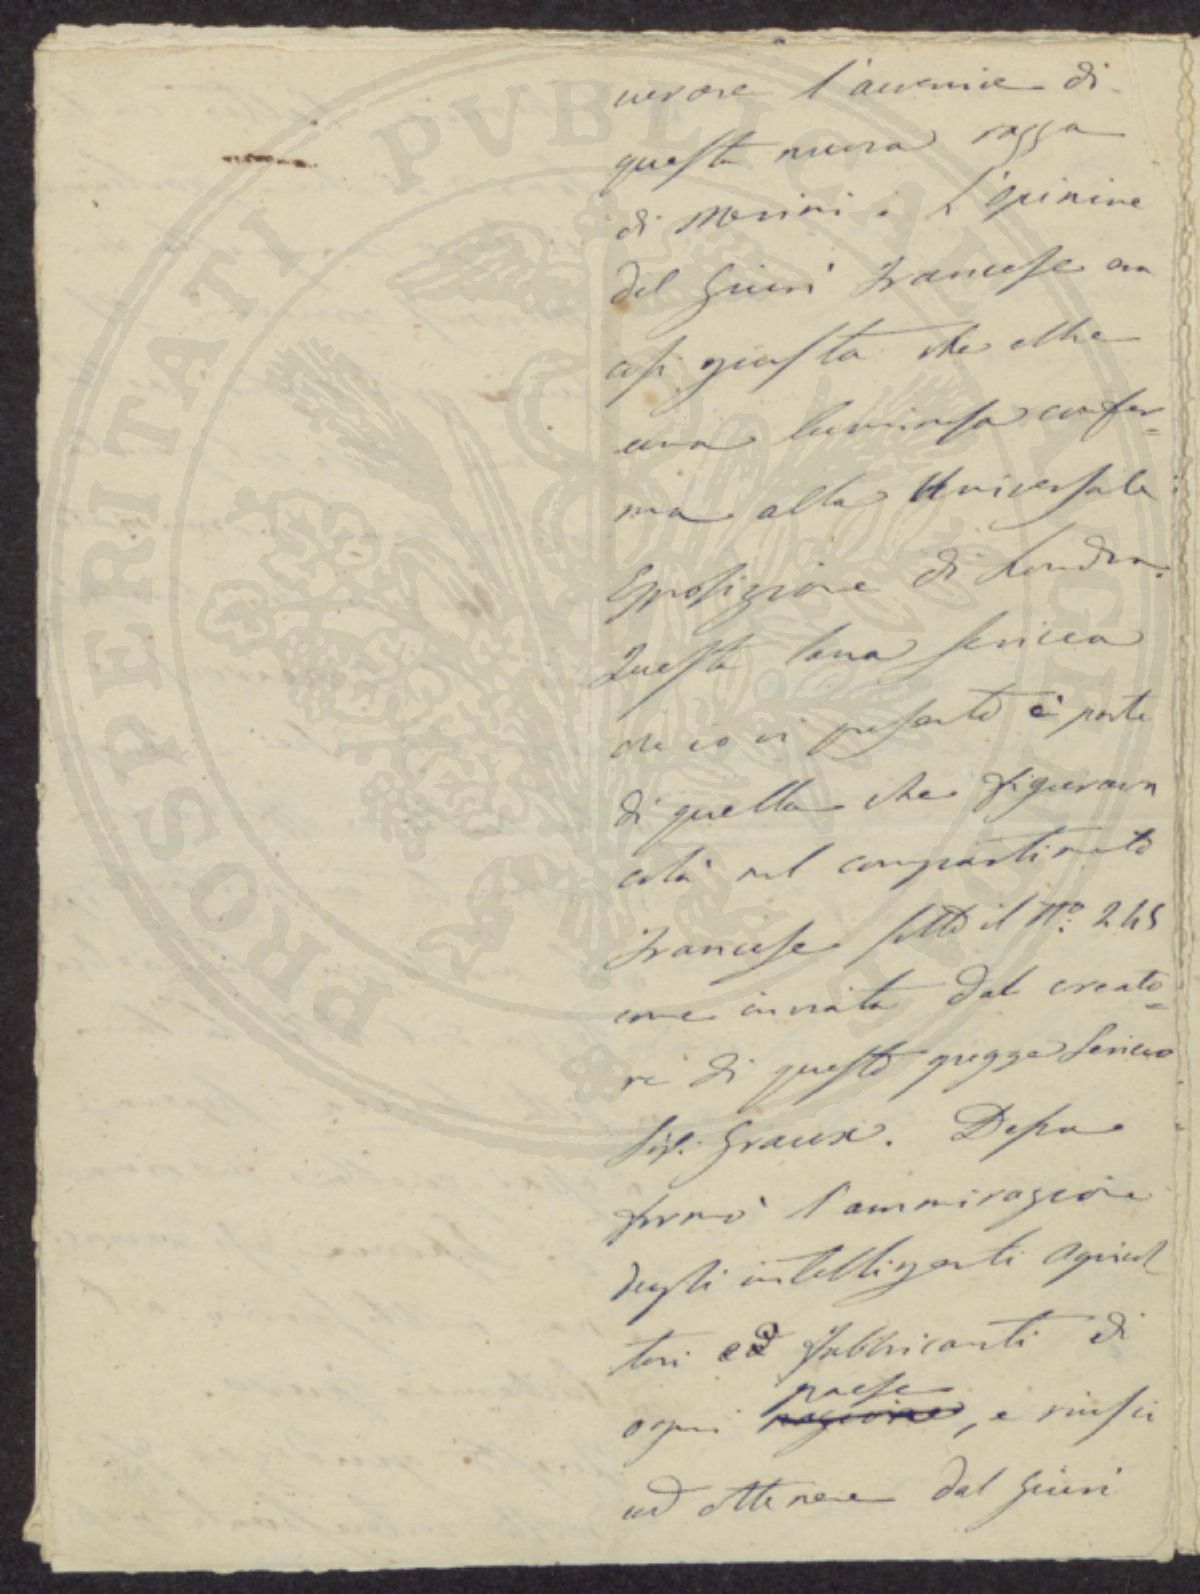 l'avvenire di
questa nuova razza
di Merini. L'opinione
del Giurì Francese era
così giusta che ebbe
una luminosa confer=
ma alla Universale
Esposizione di Londra.
Questa lana sericea
che io vi presento è parte
di quella che figurava
colà nel compartimento
Francese sotto il N.º 245
come inviata dal creato=
re di questo gregge Sericeo
Sig. Graux. Dessa
formò l'ammirazione
degli intelligenti agricol
tori ed fabbricanti di
ogni paese, e riuscì
ad ottenere dal Giurì
PROSPERITATI PVBLICAE